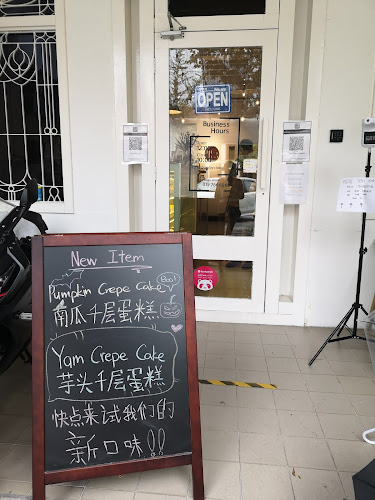 OPEN
Business
Hours
New Item
Pumpkin Crepe Cake
Boo!
南瓜千层蛋糕
Yam Crepe Cake
芋头千层蛋糕
快点来试我们的
新口味!!